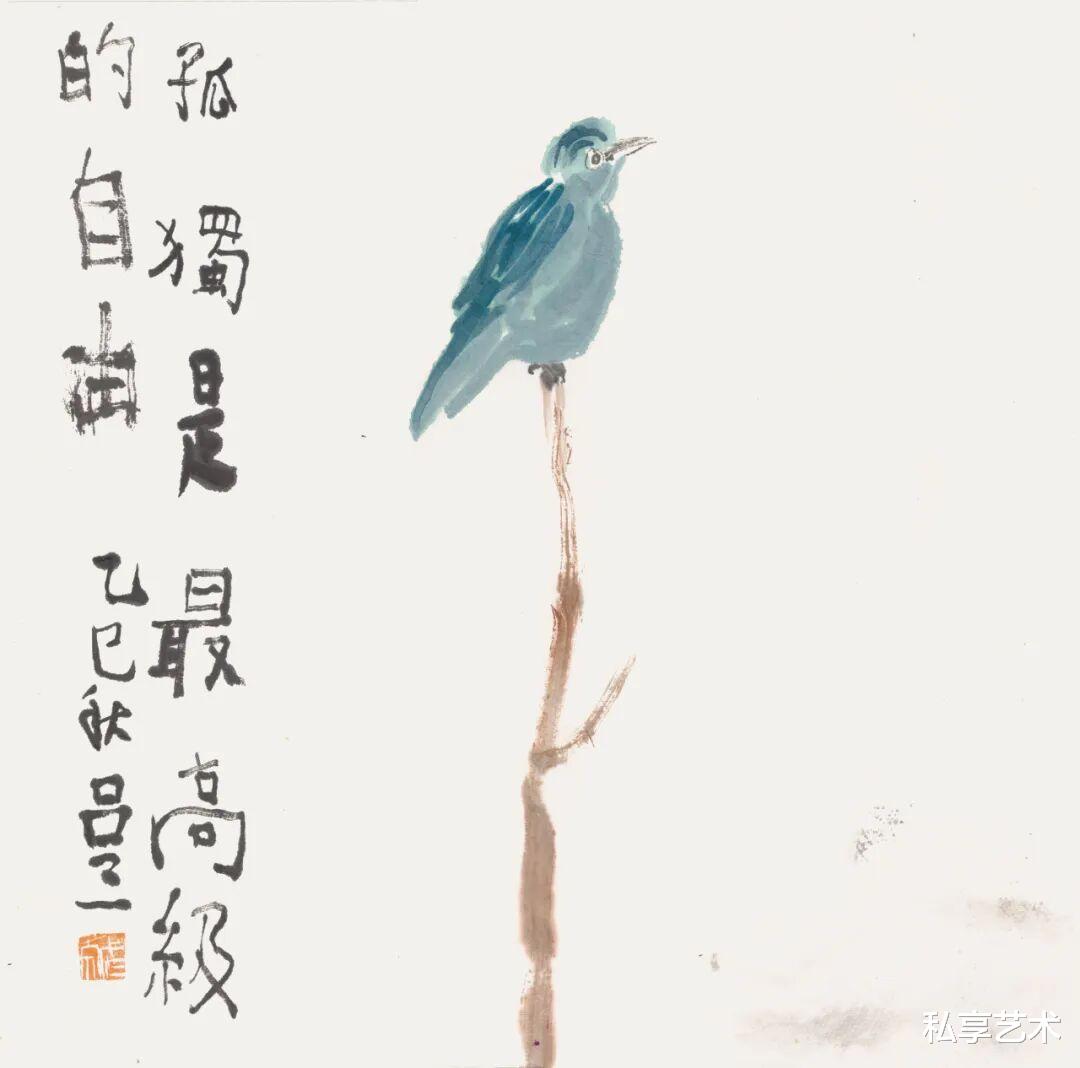 孤獨是最高級
的自由
乙巳秋吕三
私享艺术